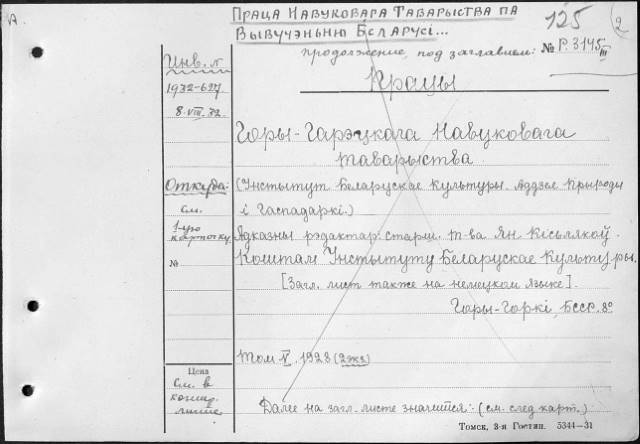 А.
125
2
ПРАЦА НАВУКОВАГА ТАВАРЫСТВА ПА
ВЫВУЧЭНЬНЮ БЕЛАРУСІ...
продолжение, под заглавием: № Р. 3145 III
Инв. №
1932-627
8.VIII.32
Працы
Горы-Гарэцкага Навуковага
таварыства
Откуда: (Інстытут Беларускае Культуры. Аддзел Прыроды
см. і Гаспадаркі.)
1-ую карточку Адказны рэдактар: старш. т-ва Ян Кісьлякоў.
№ Коштам Інстытуту Беларускае Культуры.
[Загл. лист также на немецком языке].
Горы-Горкі, Бсср. 8°
Том V. 1928 (2 экз)
Цена
см. в
Далее на загл. листе значится: (см. след карт.)
Томск, 3-я Гостип. 5344—31